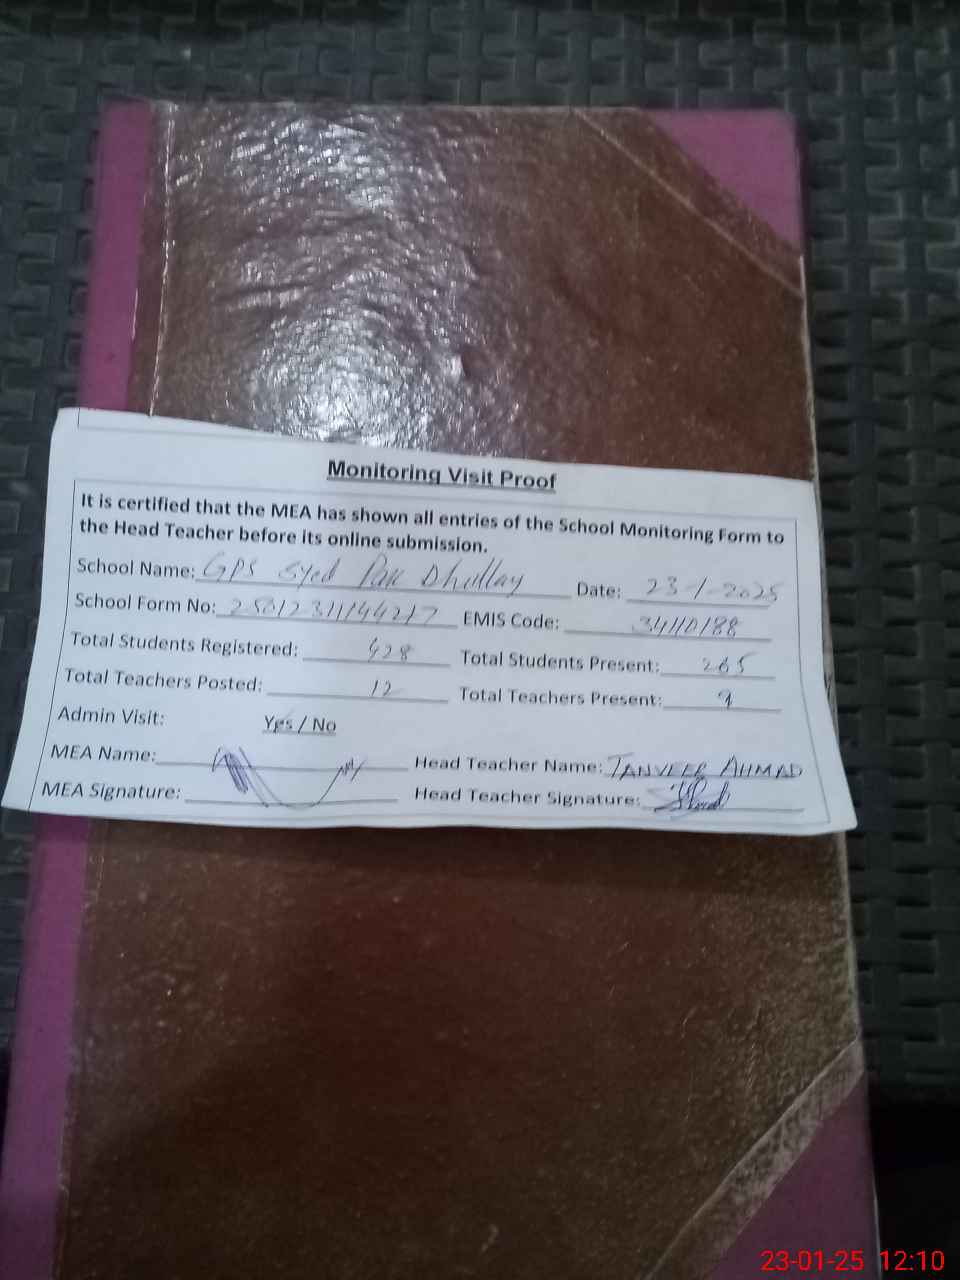 Monitoring Visit Proof
It is certified that the MEA has shown all entries of the School Monitoring Form to
the Head Teacher before its online submission.
School Name: GPS Syed Pak Dhullay Date: 23-1-2025
School Form No: EMIS Code: 34110188
Total Students Registered: 428 Total Students Present: 265
Total Teachers Posted: 12 Total Teachers Present: 9
Admin Visit: Yes / No
MEA Name: Head Teacher Name: TANVEER AHMAD
MEA Signature: Head Teacher Signature:
23-01-25 12:10